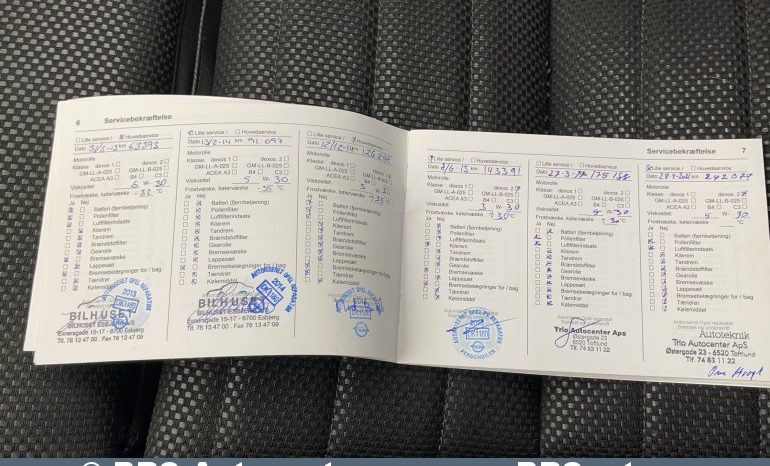 6 Servicebekræftelse
Lille service / Hovedservice
Dato km 63393
Motorolie
Klasse: dexos 1 dexos 2
GM-LL-A-025 GM-LL-B-025
ACEA A3 B4 C3
Viskositet 5 W- 30
Frostvæske, kølervæske -32 °C
Ja Nej
Batteri (fjernbetjening)
Pollenfilter
Luftfilterindsats
Kilerem
Tandrem
Brændstoffilter
Gearolie
Bremsevæske
Lappesæt
Bremsebelægninger for / bag
Tændrør
Kølemiddel
AUTORISERET OPEL REPARATØR
2013
DK1180
BILHUSET
BILHUSET ESBJERG
Esbjerg
Tlf. 76 13 47 00 . Fax 76 13 47 09
Lille service / Hovedservice
Dato 13/2-14 km 91 697
Motorolie
Klasse: dexos 1 dexos 2
GM-LL-A-025 GM-LL-B-025
ACEA A3 B4 C3
Viskositet 5 W- 30
Frostvæske, kølervæske -35 °C
Ja Nej
Batteri (fjernbetjening)
Pollenfilter
Luftfilterindsats
Kilerem
Tandrem
Brændstoffilter
Gearolie
Bremsevæske
Lappesæt
Bremsebelægninger for / bag
Tændrør
Kølemiddel
AUTORISERET OPEL REPARATØR
2014
DK1180
BILHUSET
15-17 - 6700 Esbjerg
Tlf. 76 13 47 00 Fax 76 13 47 09
Lille service / Hovedservice
Dato 12/12-14 km
Motorolie
Klasse: dexos 1 dexos 2
GM-LL-A-025 GM-LL-B-025
ACEA A3 B4 C3
Viskositet 5 W- 30
Frostvæske, kølervæske -35 °C
Ja Nej
Batteri (fjernbetjening)
Pollenfilter
Luftfilterindsats
Kilerem
Tandrem
Brændstoffilter
Gearolie
Bremsevæske
Lappesæt
Bremsebelægninger for / bag
Tændrør
Kølemiddel
Servicebekræftelse 7
Lille service / Hovedservice
Dato 8/6-15 km 143391
Motorolie
Klasse: dexos 1 dexos 2
GM-LL-A-025 GM-LL-B-025
ACEA A3 B4 C3
Viskositet 5 W- 30
Frostvæske, kølervæske -30 °C
Ja Nej
Batteri (fjernbetjening)
Pollenfilter
Luftfilterindsats
Kilerem
Tandrem
Brændstoffilter
Gearolie
Bremsevæske
Lappesæt
Bremsebelægninger for / bag
Tændrør
Kølemiddel
DK1180
Lille service / Hovedservice
Dato km
Motorolie
Klasse: dexos 1 dexos 2
GM-LL-A-025 GM-LL-B-025
ACEA A3 B4 C3
Viskositet 5 W- 30
Frostvæske, kølervæske -30 °C
Ja Nej
Batteri (fjernbetjening)
Pollenfilter
Luftfilterindsats
Kilerem
Tandrem
Brændstoffilter
Gearolie
Bremsevæske
Lappesæt
Bremsebelægninger for / bag
Tændrør
Kølemiddel
Trio Autocenter Aps
Østergade 23
6520 Toftlund
Tlf. 74 83 11 22
Lille service / Hovedservice
Dato km
Motorolie
Klasse: dexos 1 dexos 2
GM-LL-A-025 GM-LL-B-025
ACEA A3 B4 C3
Viskositet 5 W- 30
Frostvæske, kølervæske °C
Ja Nej
Batteri (fjernbetjening)
Pollenfilter
Luftfilterindsats
Kilerem
Tandrem
Brændstoffilter
Gearolie
Bremsevæske
Lappesæt
Bremsebelægninger for / bag
Tændrør
Kølemiddel
Autoteknik
Trio Autocenter ApS
Østergade 23 - 6520 Toftlund
Tlf. 74 83 11 22